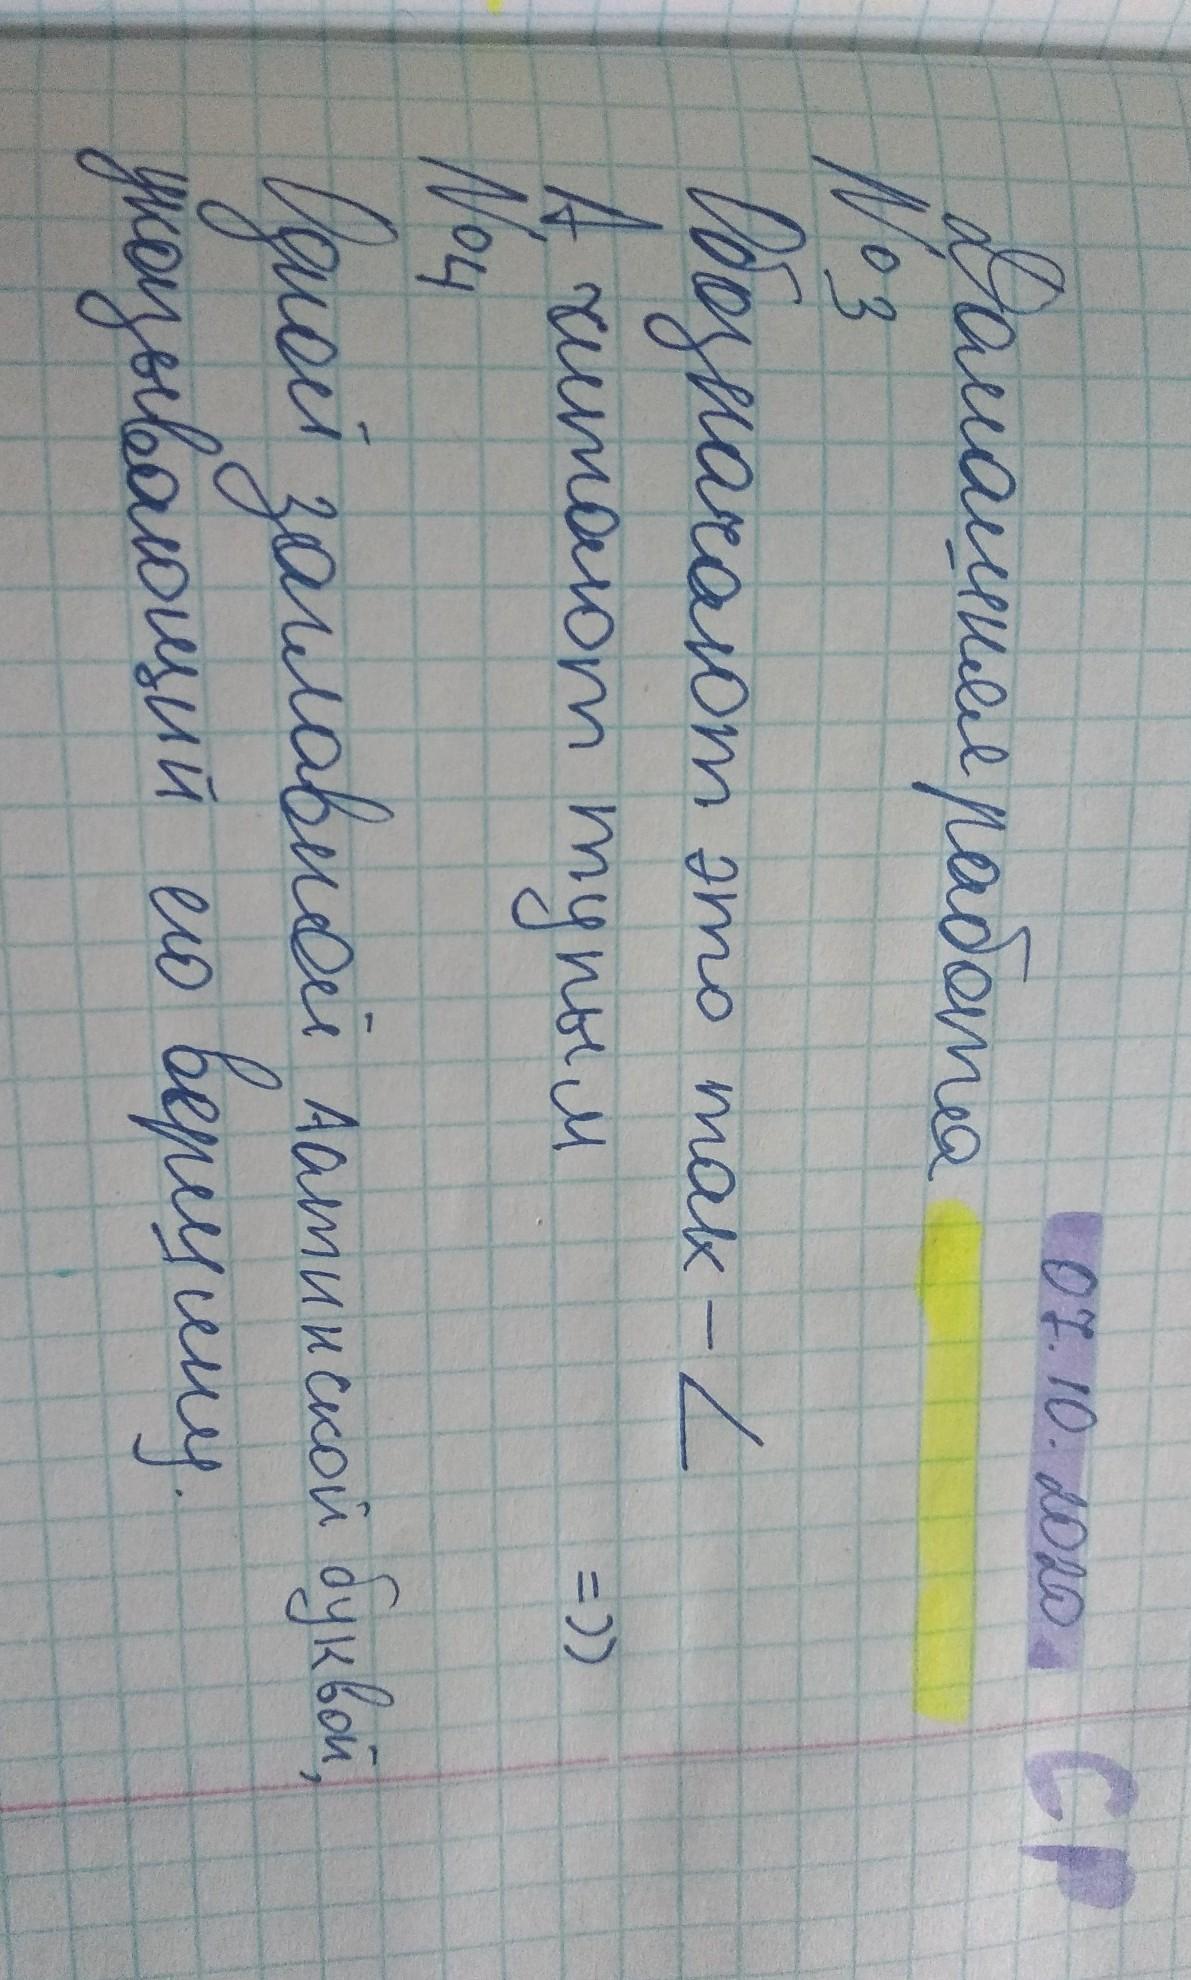 07.10.2020 СР
Домашняя работа
№3
Обозначают это так - ∠
А читают тупым =))
№4
Одной заглавной латинской буквой,
указывающий его вершину.